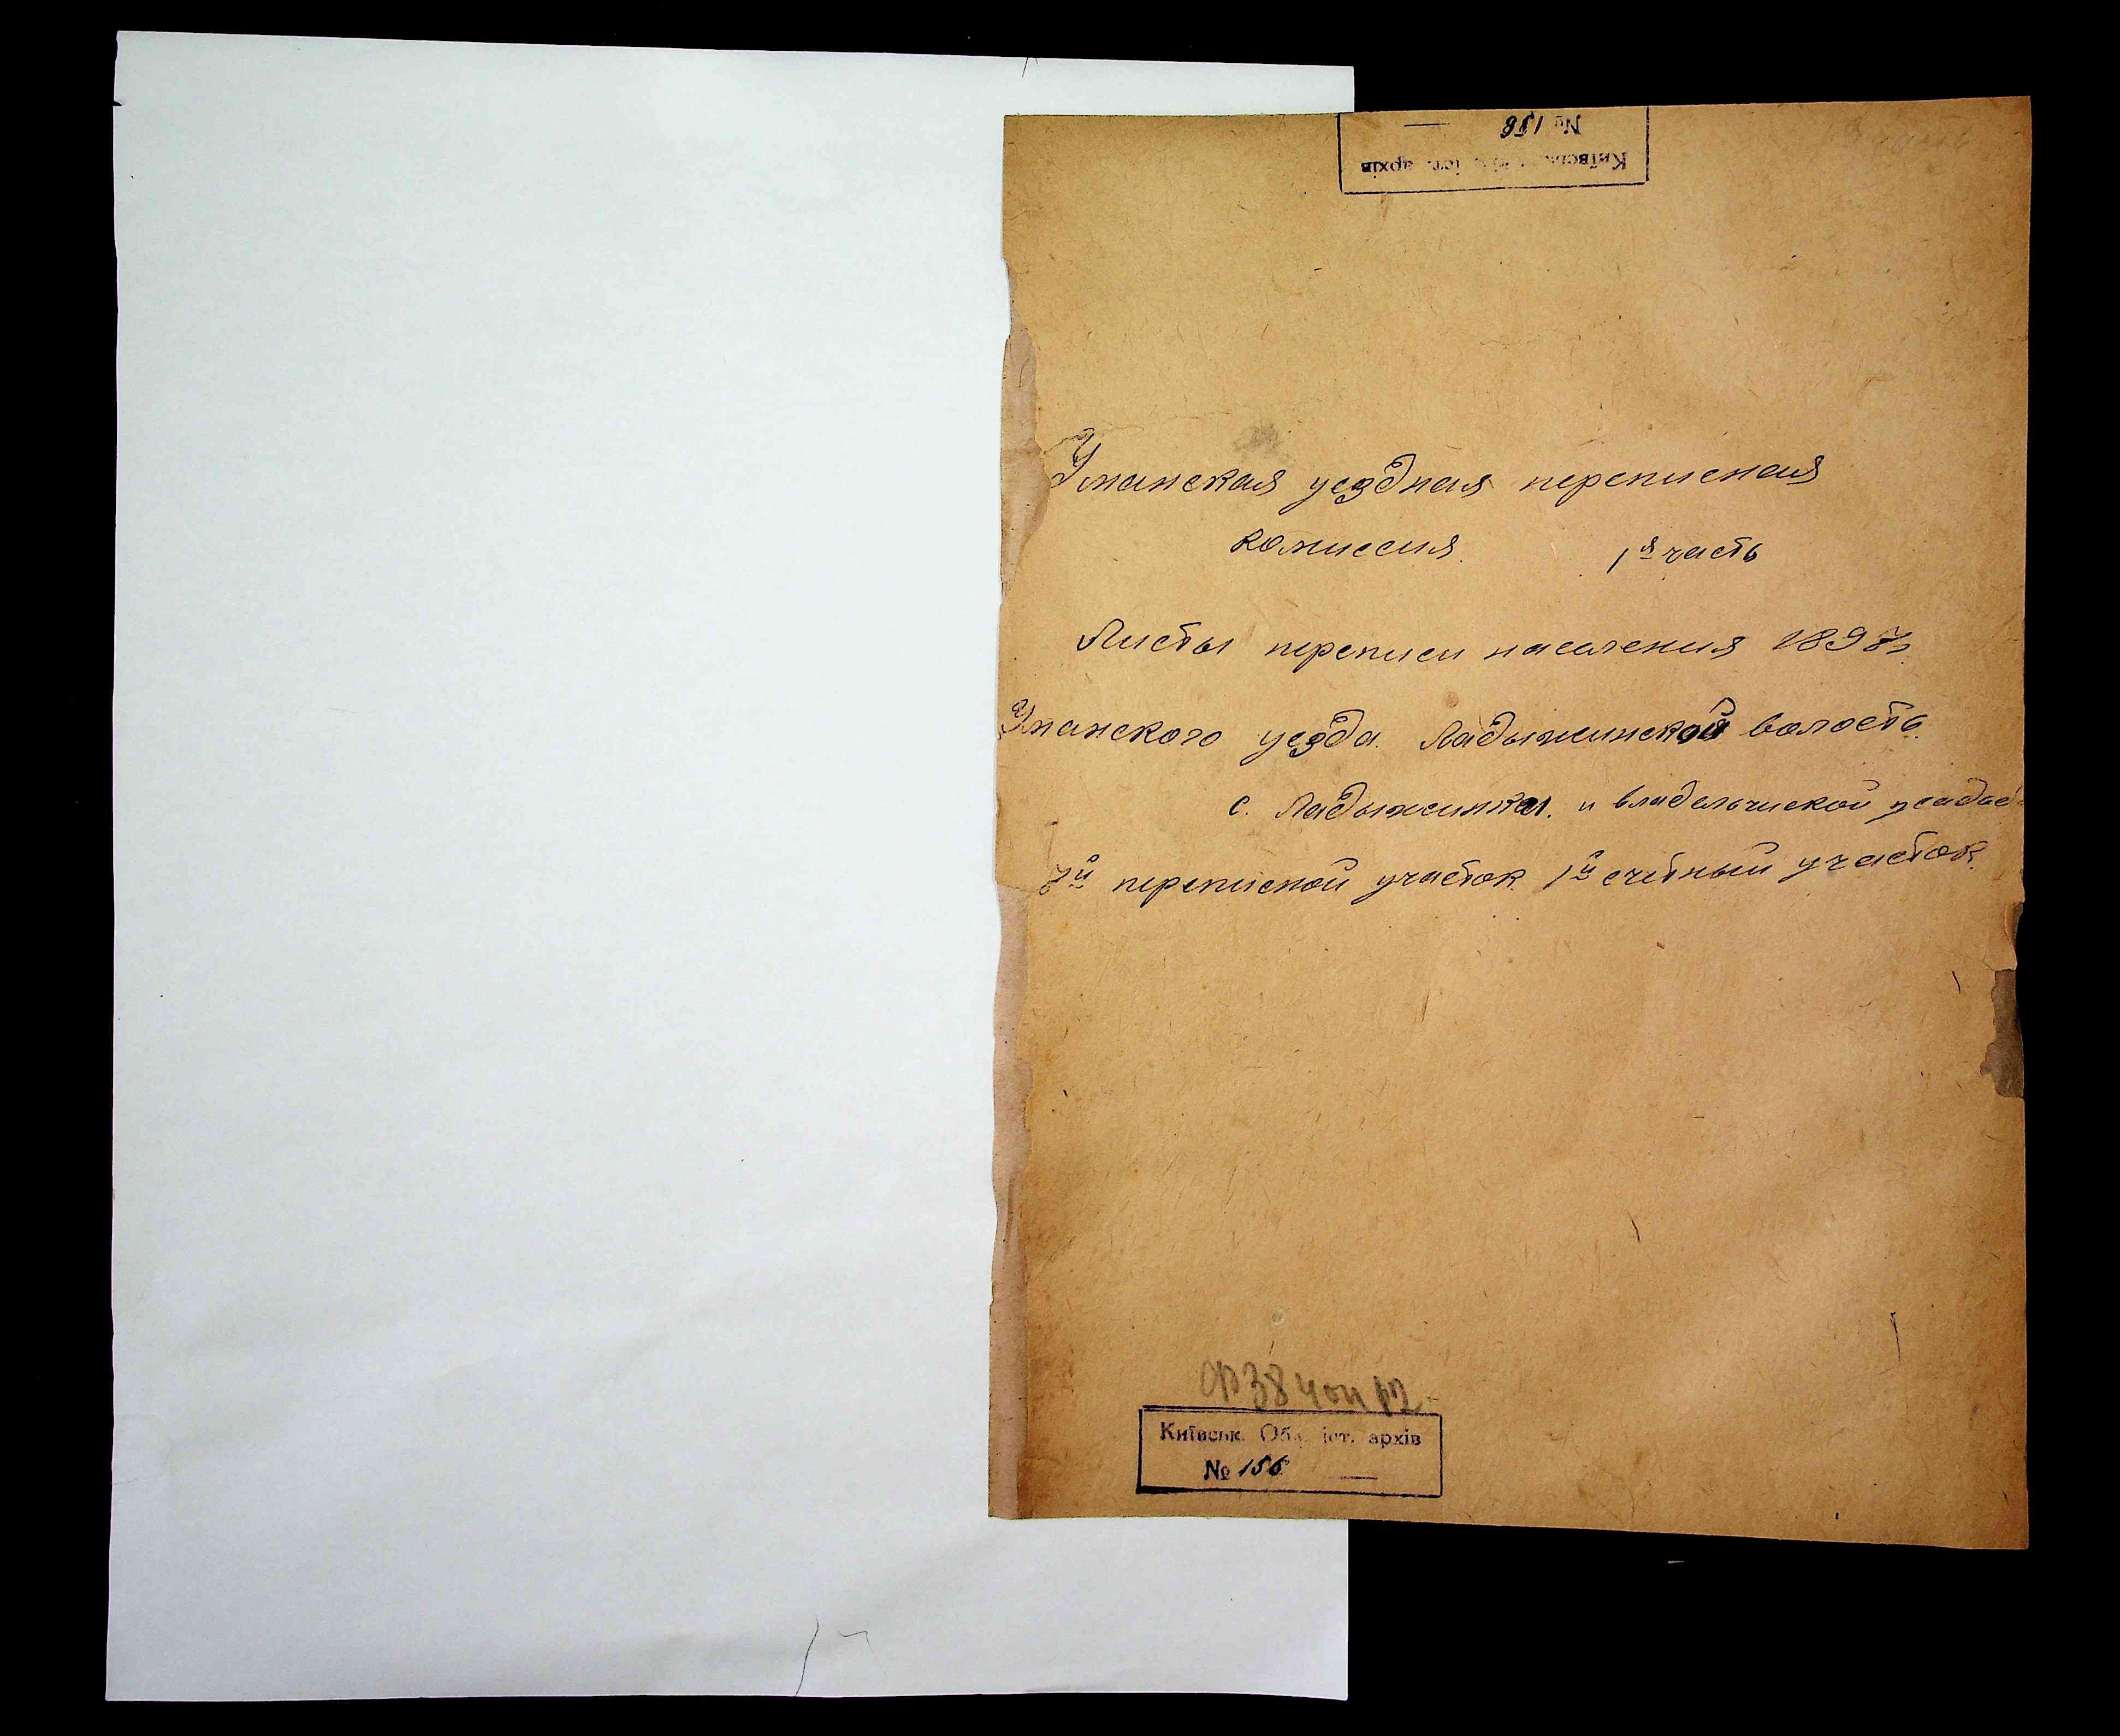 № 158 —
Київськ. іст. архів
Уманская уездная переписная
комиссия. 1я часть
Листы переписи населения 1897г.
Уманского уезда. Ладыжинской волость.
с. Ладыжинка. и владельческой усадьб
7й переписной участок 1й счётный участок.
ф 384 оп 12
Київськ. Обл. іст. архів
№ 156 —